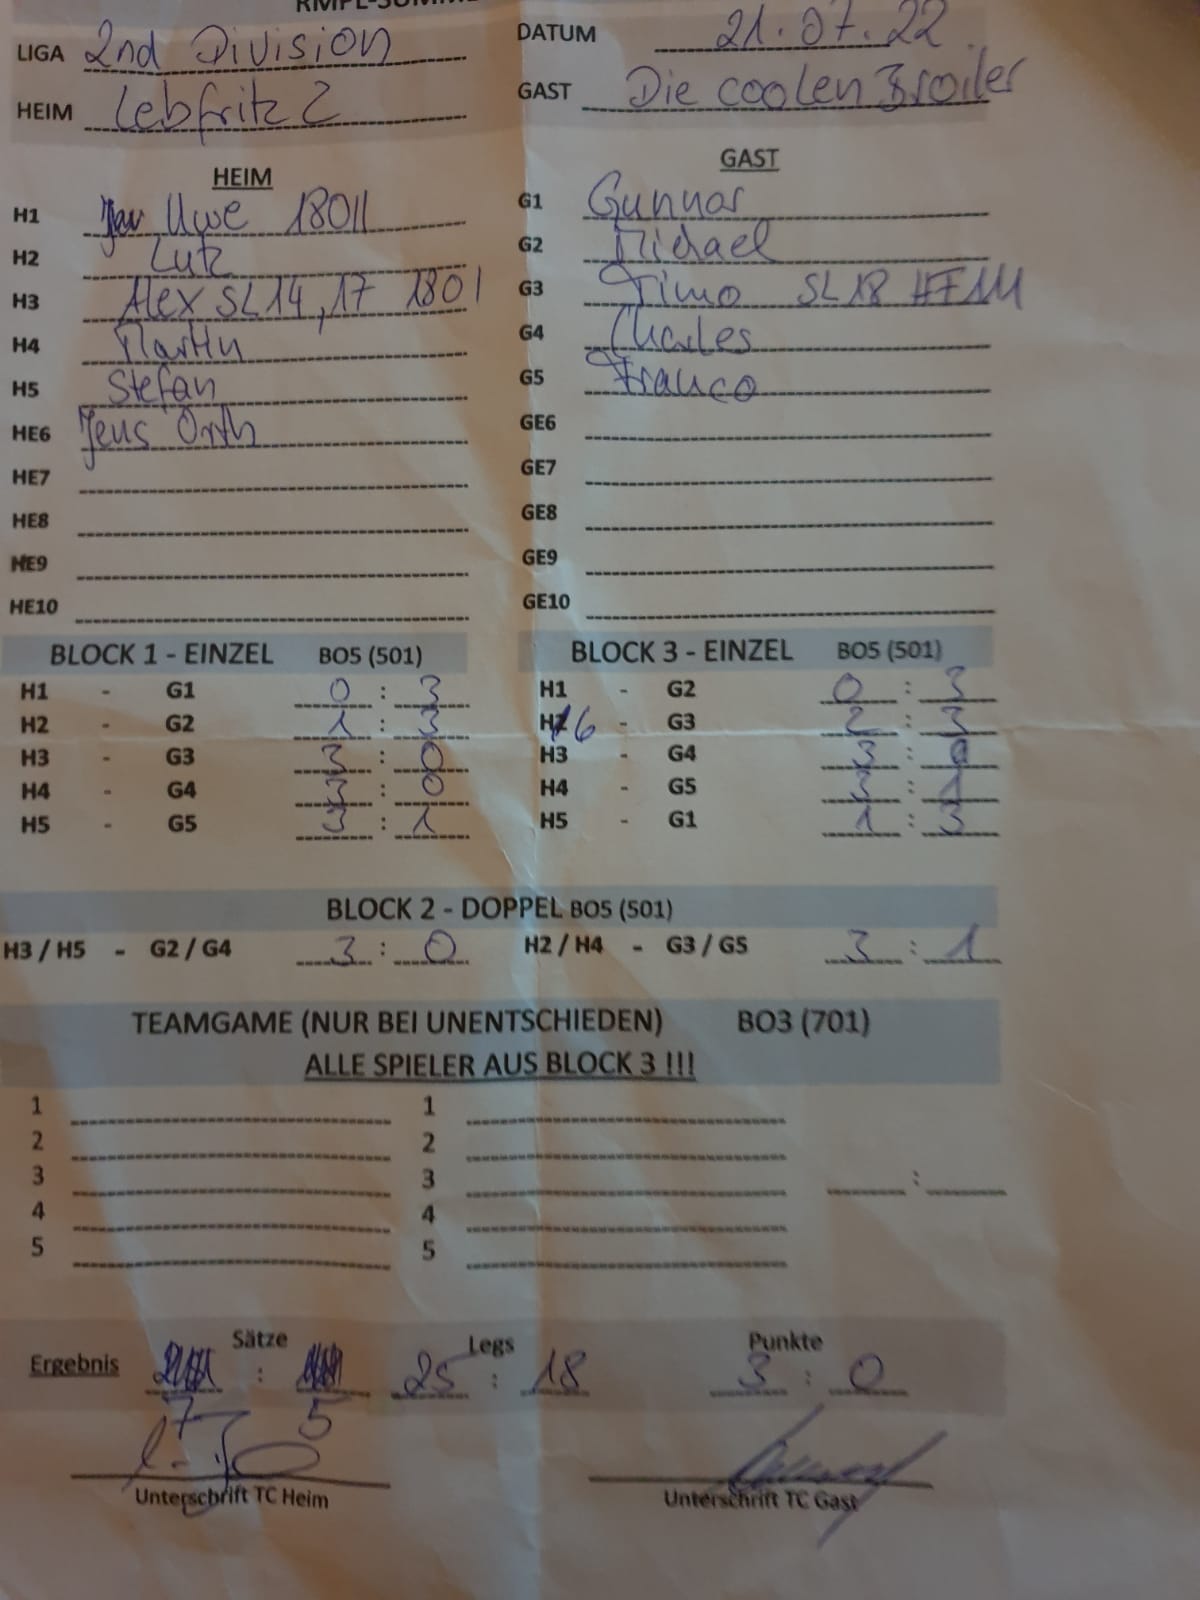 LIGA 2nd Division DATUM 21.07.22
HEIM Lebfritz 2 GAST Die coolen Broiler
HEIM GAST
H1 Uwe 180 || G1 Gunnar
H2 Lutz G2 Michael
H3 Alex SL 14, 17 180 | G3 Timo SL 18 HF 111
H4 Martin G4 Charles
H5 Stefan G5 Franco
HE6 Jens Orth GE6
HE7 GE7
HE8 GE8
HE9 GE9
HE10 GE10
BLOCK 1 - EINZEL BO5 (501) BLOCK 3 - EINZEL BO5 (501)
H1 - G1 0 : 3 H1 - G2 0 : 3
H2 - G2 1 : 3 H6 - G3 2 : 3
H3 - G3 3 : 0 H3 - G4 3 :
H4 - G4 3 : 0 H4 - G5 3 : 1
H5 - G5 3 : 1 H5 - G1 1 : 3
BLOCK 2 - DOPPEL BO5 (501)
H3 / H5 - G2 / G4 3 : 0 H2 / H4 - G3 / G5 3 : 1
TEAMGAME (NUR BEI UNENTSCHIEDEN) BO3 (701)
ALLE SPIELER AUS BLOCK 3 !!!
1 1
2 2
3 3 :
4 4
5 5
Sätze Legs Punkte
Ergebnis : 25 : 18 3 : 0
7 5
Unterschrift TC Heim Unterschrift TC Gast